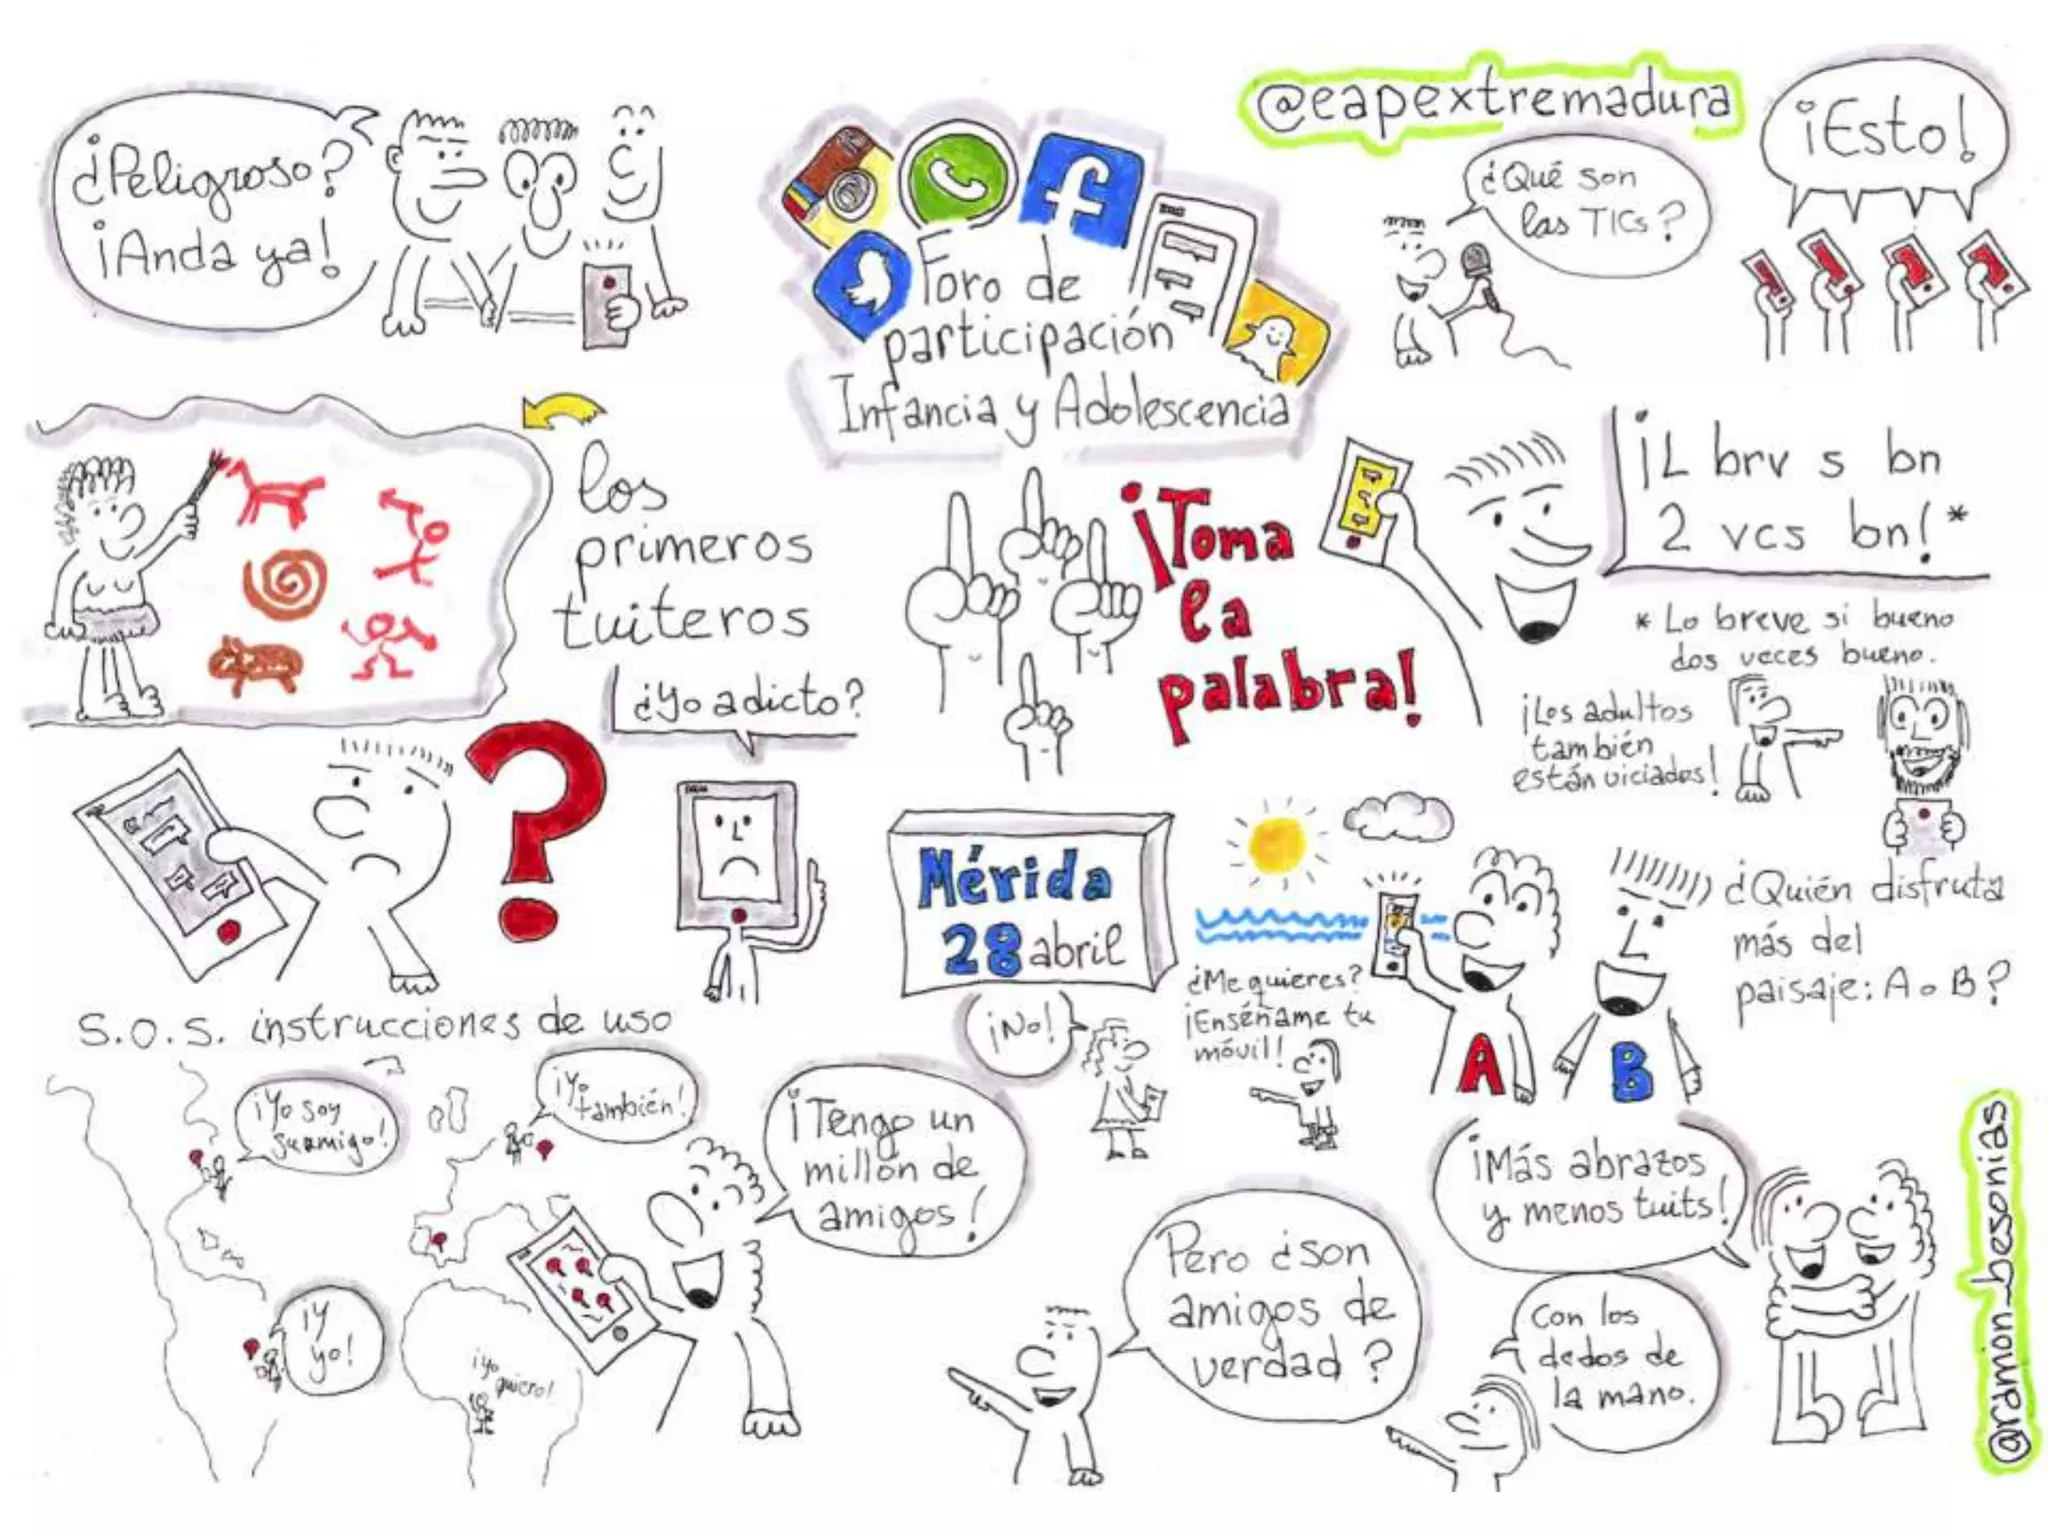 @eapextremadura
¿Peligroso?
¡Anda ya!
Foro de
participación
Infancia y Adolescencia
¿Qué son
las TICs?
¡Esto!
los
primeros
tuiteros
¡Toma
la
palabra!
¡L brv s bn
2 vcs bn!*
* Lo breve si bueno
dos veces bueno.
¿Yo adicto?
¡Los adultos
también
están viciados!
Mérida
28 abril
¿Quién disfruta
más del
paisaje: A o B?
A
B
¿Me quieres?
¡Enséñame tu
móvil!
¡No!
S.O.S. instrucciones de uso
¡Yo soy
su amigo!
¡Yo
también!
¡Y
yo!
¡yo
quiero!
¡Tengo un
millón de
amigos!
Pero ¿son
amigos de
verdad?
¡Más abrazos
y menos tuits!
Con los
dedos de
la mano.
@ramon_besonias